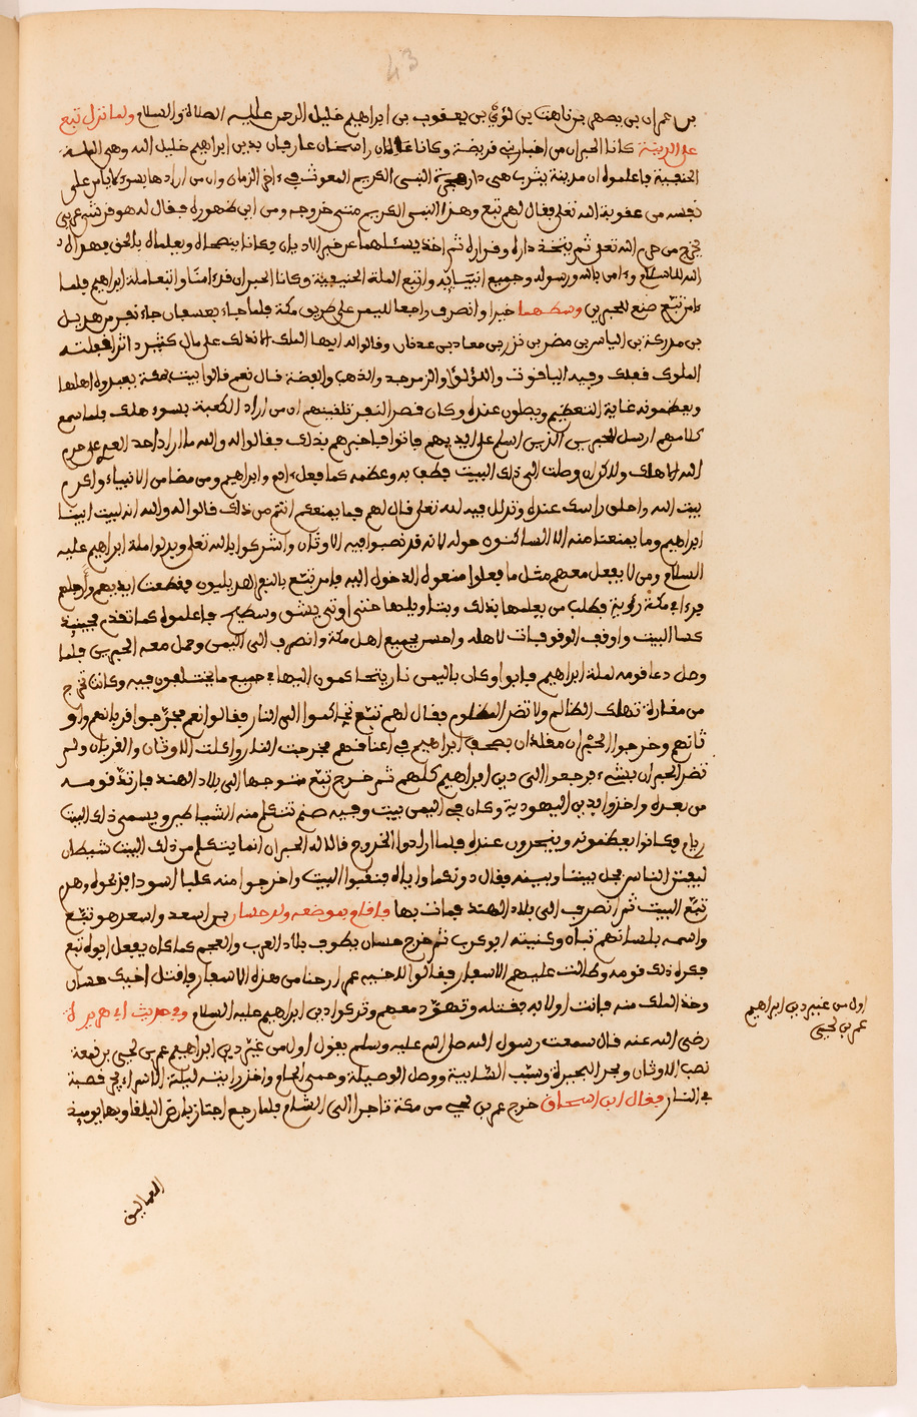 43
بن عمران بن يصهر بن قاهت بن لاوي بن يعقوب بن ابراهيم خليل الرحمن عليه الصلاة والسلام ولما نزل تبع
على المدينة كانا الحبران من احبار بني قريضة وكانا عالمان راسخان عارفان بدين ابراهيم خليل الله وهي الملة
الحنفية فاعلموه ان مدينة يثرب هي دار هجرة النبي الكريم المبعوث في ءاخر الزمان وان من ارادها بسوء لا يامن على
نفسه من عقوبة الله تعلى فقال لهم تبع وهذا النبي الكريم متى خروجه ومن اين ظهوره فقال له هو قرشي عربي
يخرج من حرم الله تعلى ثم يتخذ داره وقراره ثم اخذ يسئلهما عن خير الاديان فكانا ينصحاه ويعلماه بالحق فهداه
الله للاسلام وءامن بالله ورسوله وجميع انبيايه واتبع الملة الحنيفية وكانا الحبران قد ءامنا واتبعا ملة ابراهيم فلما
ءامن تبع صنع للحبرين وسطهما خيرا وانصرف راجعا لليمن على طريق مكة فلما جاء بعسفان جاء نفر من هذيل
بن مدركة بن الياس بن مضر بن نزر بن معاد بن عدنان وقالوا له ايها الملك الا ندلك على مال كثير داثر اغفلته
الملوك قبلك وفيه الياقوت واللؤلؤ والزمرجد والذهب والفضة قال نعم قالوا بيت بمكة يعبدوه اهلها
ويعظمونه غاية التعظيم ويصلون عنده وكان قصر النفر تلفيتهم ان من اراد الكعبة بسوء هلك فلما سمع
كلامهم ارسل للحبرين الذين اسلم على ايديهم فاتوا فاخبرهم بذلك فقالوا له والله ما اراد احد العج على حرم
الله الا هلك ولاكن ان وصلت الى ذلك البيت فطف به وعظمه كما فعل ءادم وابراهيم ومن مضا من الانبياء واكرم
بيت الله واحلق راسك عنده وتذلل فيه لله تعلى قال لهم فما يمنعكم انتم من ذلك قالوا له والله انه لبيت ابينا
ابراهيم وما يمنعنا منه الا الساكنوه حوله لانه قد نصبوا فيه الاوثان واشركوا بالله تعلى وبدلوا ملة ابراهيم عليه
السلام ومن لا يفعل معهم مثل ما فعلوا منعوه الدخول اليه فامر تبع بالنفر الهذيليون فقطعت ايديهم وارجلهم
فرءا في مكة رؤية فطلب من يعلمها بذلك وبتاويلها حتى اوتي بشق وسطيح فاعلموه كما تقدم فحينيذ
كسا البيت واوقف الوقوفات لاهله واحسن بجميع اهل مكة وانصرف الى اليمن وحمل معه الحبرين فلما
وصل دعا قومه لملة ابراهيم فابوا وكان باليمن نار يتحاكمون اليها في جميع ما يختلفون فيه وكانت تخرج
من مغارة تهلك الظالم ولا تضر المظلوم فقال لهم تبع نتحاكموا الى النار فقالوا نعم فخرجوا قربانهم واو
ثانهم وخرجوا الحبران مقلدان بصحف ابراهيم في اعناقهم فخرجت النار واكلت الاوثان والقربان ولم
تضر الحبران بشيء فرجعوا الى دين ابراهيم كلهم ثم خرج تبع متوجها الى بلاد الهند فارتد قومه
من بعده واخذوا بدين اليهودية وكان في اليمن بيت وفيه صنم تتكلم منه الشياطير ويسمى ذلك البيت
ريام فكانوا يعظمونه وينحرون عنده فلما ارادوا الخروج قالا له الحبران انما يتكلم من ذلك البيت شيطان
ليفتن الناس فخل بيننا وبينه فقال دونكما واياه فنقبوا البيت واخرجوا منه كلبا اسودا فذبحوه وهدم
تبع البيت ثم انصرف الى بلاد الهند فمات بها فاقام بموضعه ولده حسان بن اسعد واسعد هو تبع
واسمه بلسانهم تباه وكنيته ابو كرب ثم خرج حسان يطوف بلاد العرب والعجم كما كان يفعل ابوه تبع
فكره ذلك قومه وطالت عليهم الاسفار فقالوا لاخيه عمر ارحنا من هذه الاسفار واقتل اخيك حسان
وخذ الملك منه فانت اولا به فقتله وتهود معهم وتركوا دين ابراهيم عليه السلام وفي حديث ابي هريرة
رضي الله عنه قال سمعت رسول الله صلى الله عليه وسلم يقول اول من غير دين ابراهيم عمر بن لحيي بن قمعة
نصب الاوثان وبحر البحيرة وسيب السايبة ووصل الوصيلة وحمى الحام واخذ رايته ليلة الاسراء يجر قصبه
في النار فقال ابن اسحاق خرج عمر بن لحي من مكة تاجرا الى الشام فلما رجع اجتاز بارض البلقا وبها يوميذ
اول من غير دين ابراهيم
عمر بن لحيي
العماليق